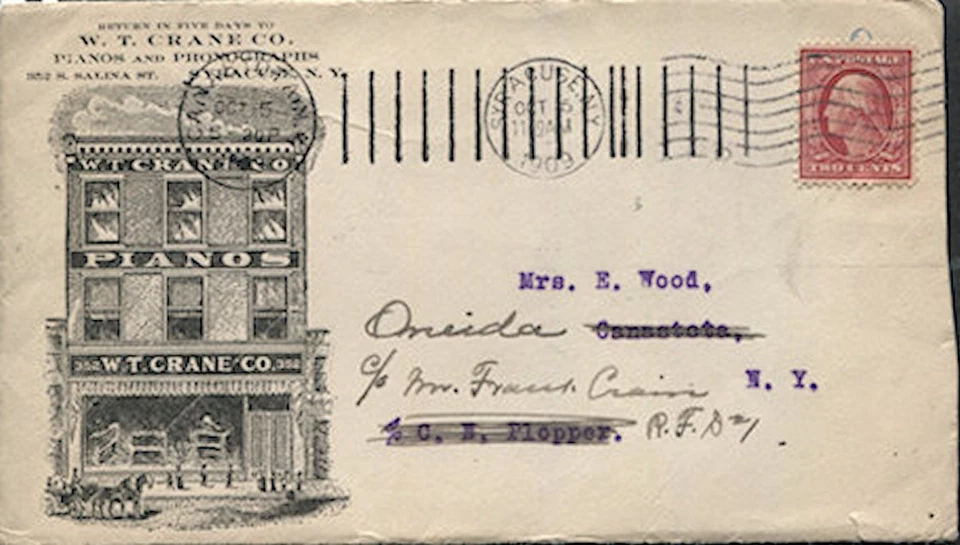 RETURN IN FIVE DAYS TO
W. T. CRANE CO.
PIANOS AND PHONOGRAPHS
352 S. SALINA ST. SYRACUSE, N. Y.
OCT 5
SYRACUSE, N.Y.
OCT 5
1909
U.S. POSTAGE
TWO CENTS
W.T. CRANE CO
PIANOS
352 W.T. CRANE CO. 352
Mrs. E. Wood,
Oneida Canastota,
c/o Mr. Frank Crain N. Y.
c/o C. E. Plopper. R.F.D